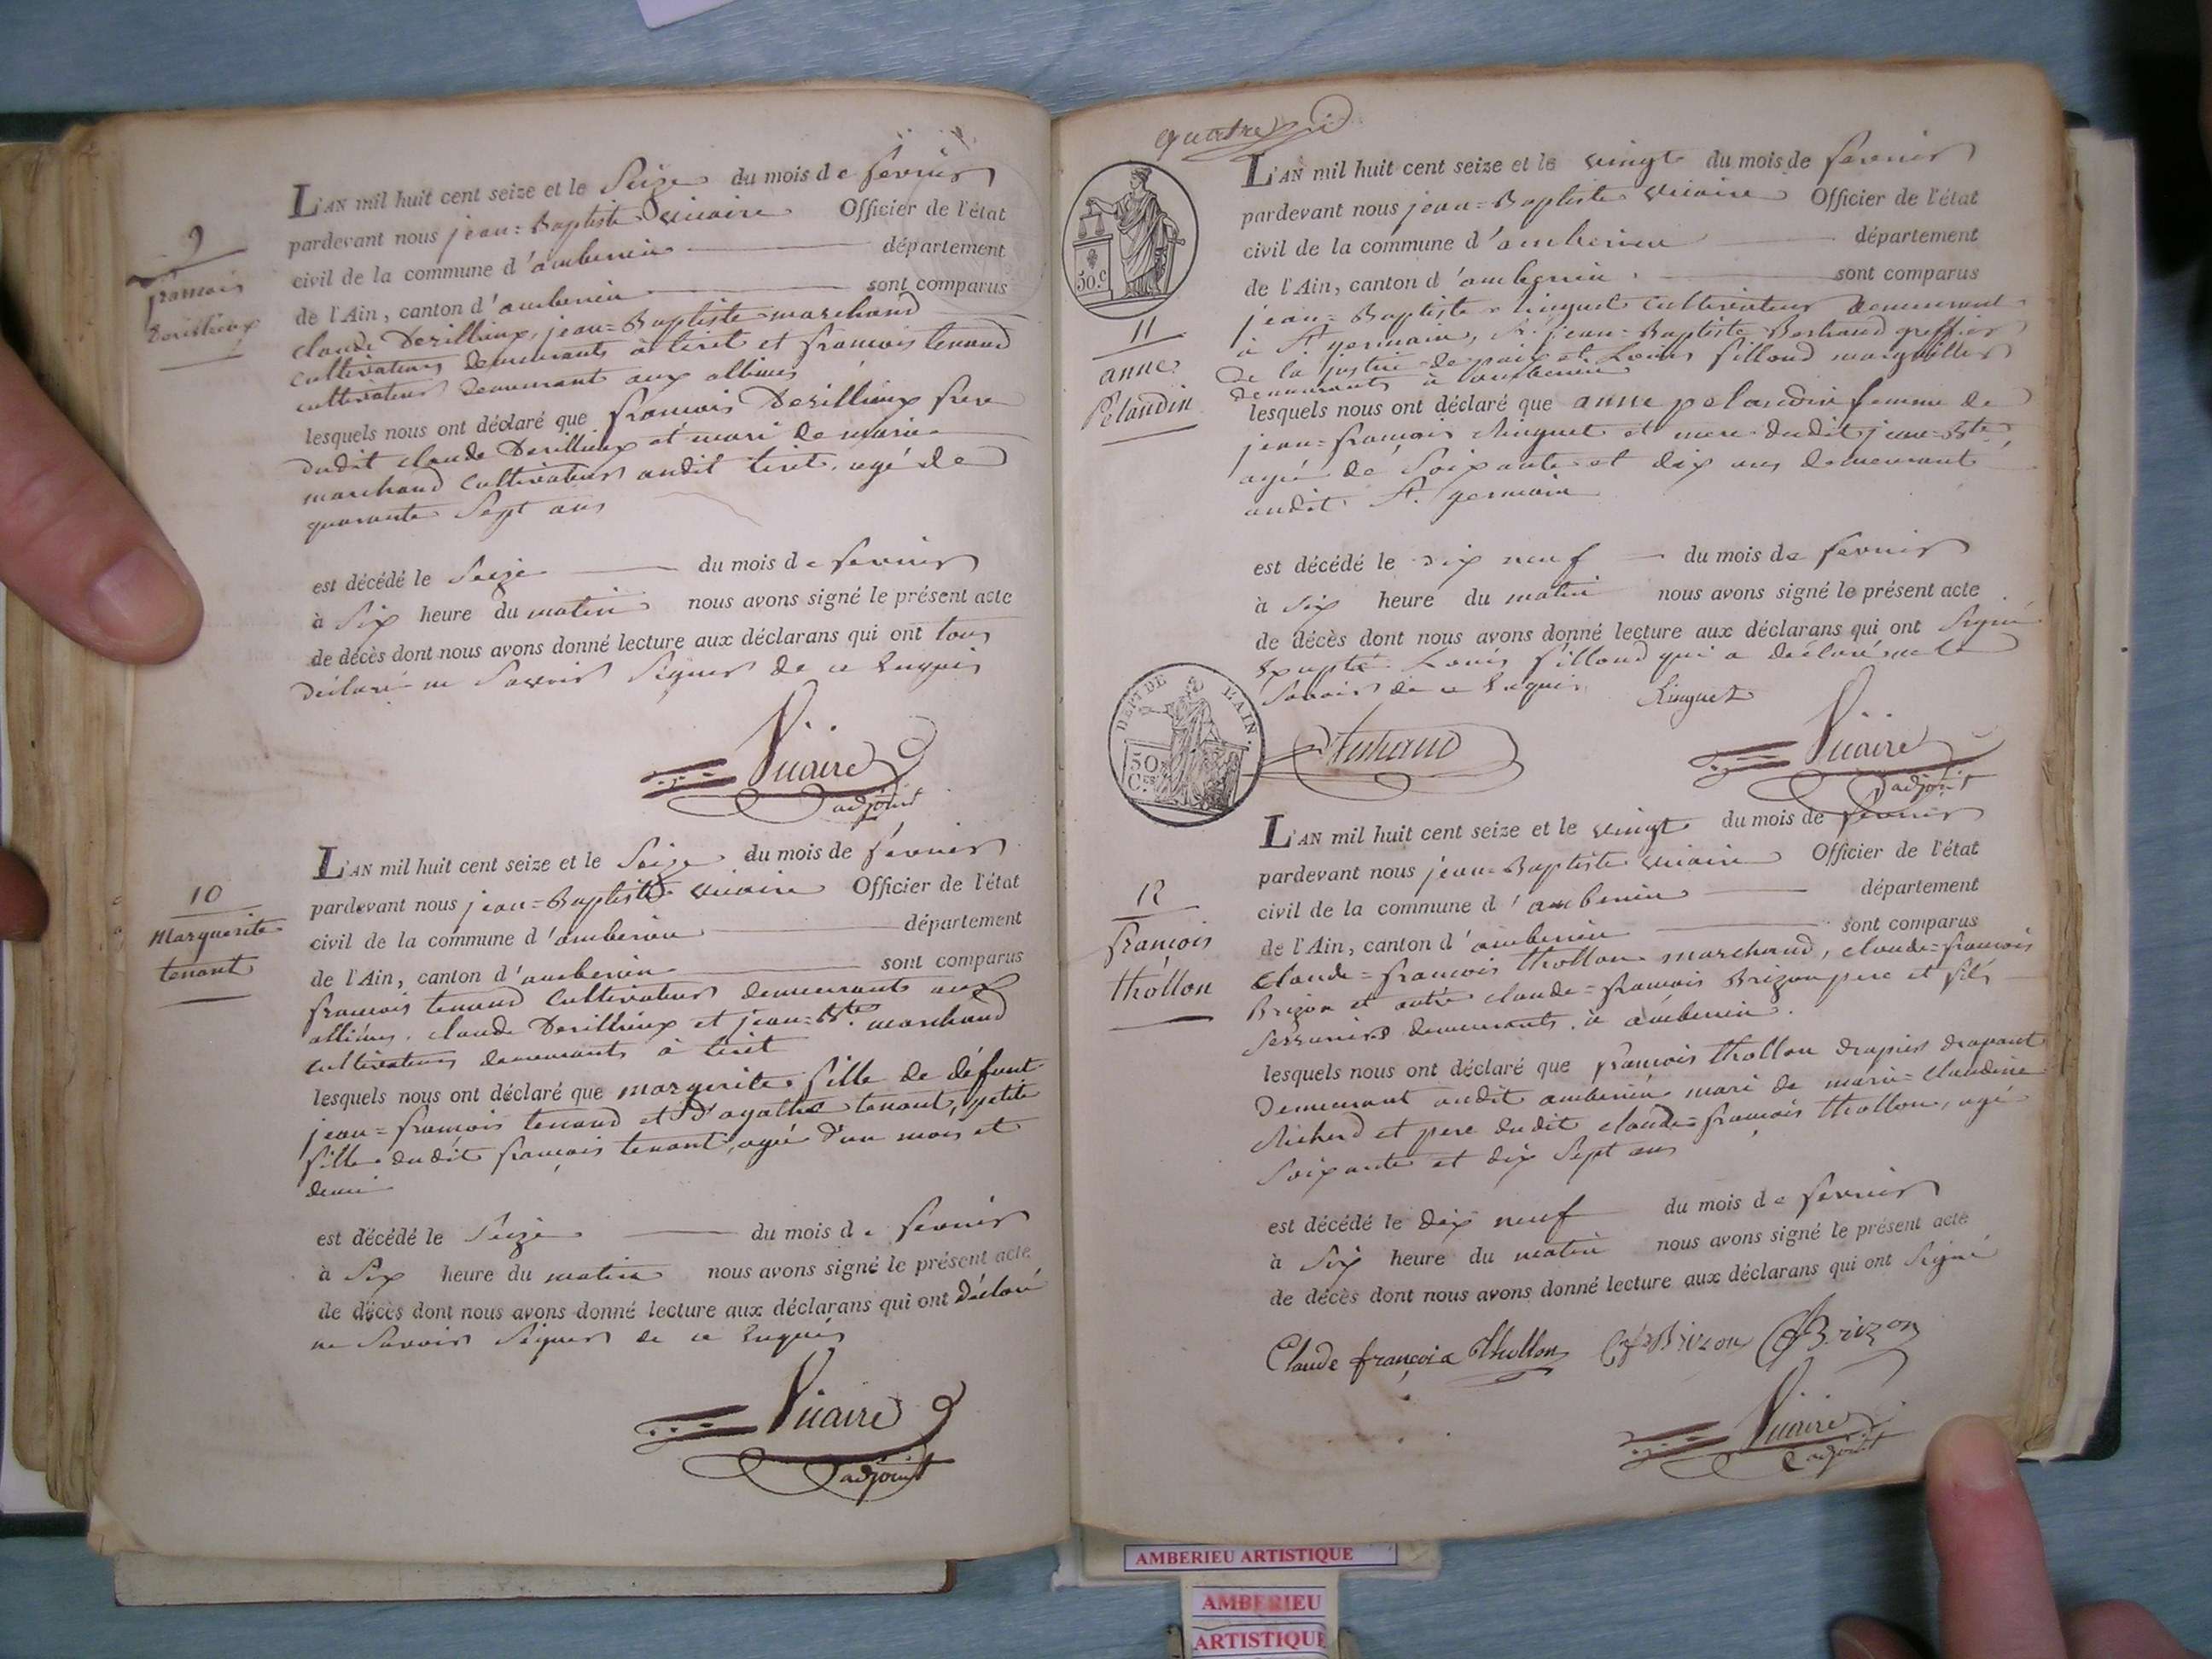 9
françois
Derillieux
L'AN mil huit cent seize et le Seize du mois de fevrier
pardevant nous jean=Baptiste vicaire Officier de l'état
civil de la commune d'amberieu département
de l'Ain, canton d'amberieu sont comparus
claude Derillieux, jean=Baptiste marchand
cultivateurs demeurants à tiret et françois tenand
cultivateur demeurant aux allimes
lesquels nous ont déclaré que françois Derillieux frere
dudit claude Derillieux et mari de marie
marchand cultivateur audit tiret, agé de
quarante Sept ans
est décédé le Seize du mois de fevrier
à Six heure du matin nous avons signé le présent acte
de décès dont nous avons donné lecture aux déclarans qui ont tous
déclaré ne Savoir Signer de ce Enquis
Vicaire
adjoint
10
Marguerite
tenant
L'AN mil huit cent seize et le Seize du mois de fevrier
pardevant nous jean=Baptiste vicaire Officier de l'état
civil de la commune d'amberieu département
de l'Ain, canton d'amberieu sont comparus
françois tenand cultivateur demeurant aux
allimes, claude Derillieux et jean=Bte. marchand
cultivateurs demeurants à tiret
lesquels nous ont déclaré que margerite fille de défunt
jean=françois tenand et d'agathe tenant, petite
fille dudit françois tenant, agée d'un mois et
demi
est décédé le Seize du mois de fevrier
à Six heure du matin nous avons signé le présent acte
de décès dont nous avons donné lecture aux déclarans qui ont déclaré
ne Savoir Signer de ce Enquis
Vicaire
adjoint
quatre
50.c
11
anne
Pelaudin
L'AN mil huit cent seize et le vingt du mois de fevrier
pardevant nous jean=Baptiste vicaire Officier de l'état
civil de la commune d'amberieu département
de l'Ain, canton d'amberieu sont comparus
jean=Baptiste chinguet cultivateur demeurant
à St germain, Sr. jean=Baptiste Bertrand greffier
de la justice de paix et Louis fillond marguillier
demeurants à amberieu
lesquels nous ont déclaré que anne pelaudin femme de
jean=françois chinguet et mere dudit jean=Bte,
agée de Soixante et dix ans demeurant
audit St. germain
est décédé le dix neuf du mois de fevrier
à six heure du matin nous avons signé le présent acte
de décès dont nous avons donné lecture aux déclarans qui ont Signé
Excepté Louis fillond qui a déclaré ne le
Savoir de ce Enquis
DEPT DE L'AIN.
50
C.es
Vicaire
adjoint
12
françois
thollon
L'AN mil huit cent seize et le vingt du mois de fevrier
pardevant nous jean=Baptiste vicaire Officier de l'état
civil de la commune d'amberieu département
de l'Ain, canton d'amberieu sont comparus
claude=françois thollon marchand, claude=françois
Brizon et autre claude=françois Brizon pere et fils
Serruriers demeurants à amberieu.
lesquels nous ont déclaré que françois thollon drapier drapant
demeurant audit amberieu mari de marie=claudine
Richerd et pere dudit claude=françois thollon, agé
Soixante et dix Sept ans
est décédé le dix neuf du mois de fevrier
à Six heure du matin nous avons signé le présent acte
de décès dont nous avons donné lecture aux déclarans qui ont Signé
Claude françois thollon Cf Brizon Cf Brizon
Vicaire
adjoint
AMBERIEU ARTISTIQUE
AMBERIEU
ARTISTIQUE